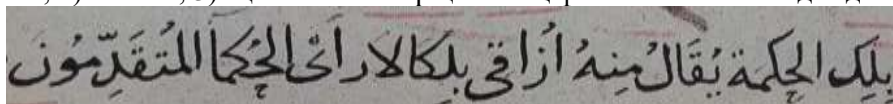 بلك الحكمة يُقَالُ مِنهُ اُزاقى بلكالار اَىْ الحُكمآ المُتقَدِّمُونَ